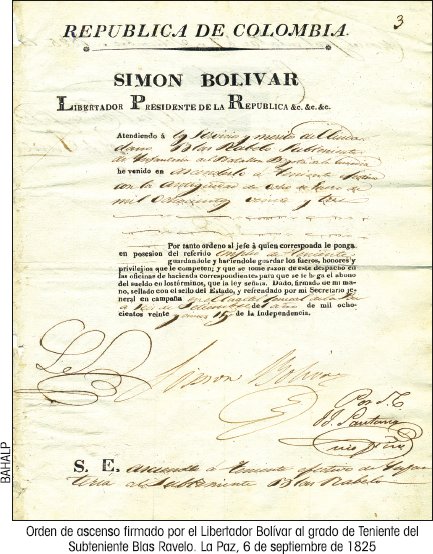 REPUBLICA DE COLOMBIA.
3
SIMON BOLIVAR
LIBERTADOR PRESIDENTE DE LA REPUBLICA &c. &c. &c.
Atendiendo á los servicios y merito del Ciuda
dano Blas Rabelo Subteniente
de Infanteria del Batallon Bogotá de la Guardia
he venido en ascenderlo á Teniente
con la antigüedad de ocho de
mil ochocientos veinte y tres
Por tanto ordeno al jefe á quien corresponda le ponga
en posesion del referido empleo de Teniente
guardandole y haciendole guardar los fueros, honores y
privilejios que le competen; y que se tome razon de este despacho en
las oficinas de hacienda correspondientes para que se le haga el abono
del sueldo en los términos, que la ley señala. Dado, firmado de mi ma-
no, sellado con el sello del Estado, y refrendado por mi Secretario
jeneral en campaña en el Cuartel General de La Paz
á seis de Setiembre de mil ocho-
cientos veinte y cinco 15 de la Independencia.
Simon Bolivar
Por S. E.
S. E. asciende á Teniente efectivo de Infan
teria al Subteniente Blas Rabelo
BAHALP
Orden de ascenso firmado por el Libertador Bolívar al grado de Teniente del
Subteniente Blas Ravelo. La Paz, 6 de septiembre de 1825